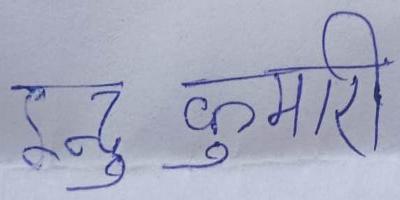 इन्दु कुमारी